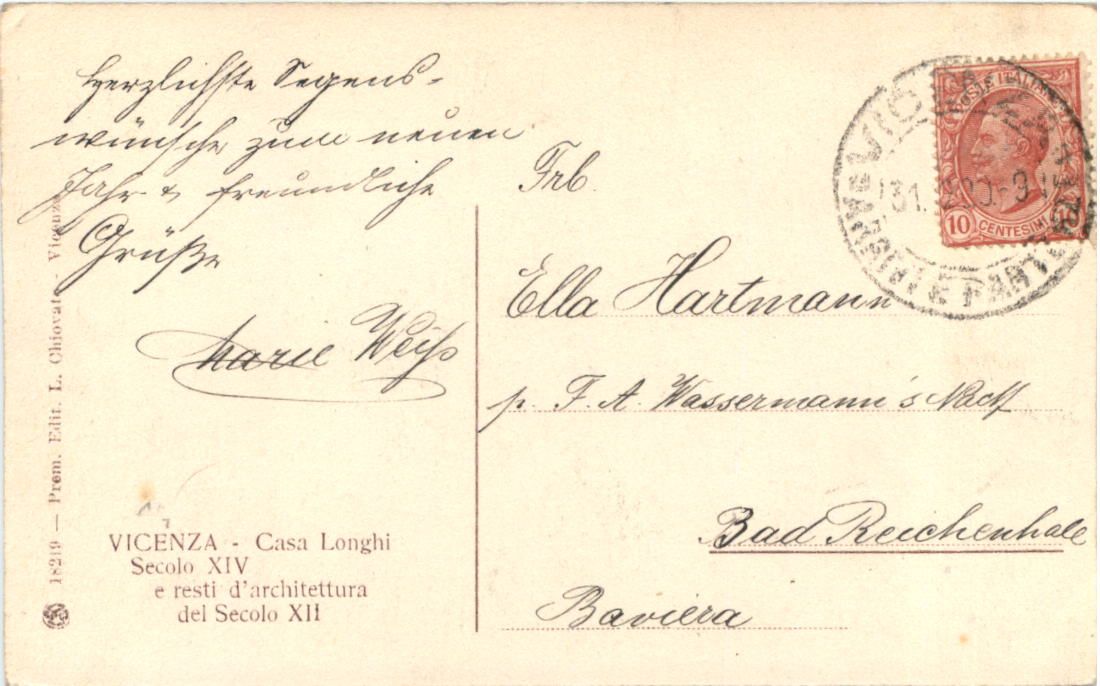 Herzlichste Segens-
wünsche zum neuen
Jahr & freundliche
Grüße
Marie Weiß
18219 — Prem. Edit. L. Chiovato - Vicenza
VICENZA - Casa Longhi
Secolo XIV
e resti d'architettura
del Secolo XII
POSTE ITALIANE
10 CENTESIMI 10
Frl.
Ella Hartmann
p. F. A. Wassermann's Nachf
Bad Reichenhall
Baviera